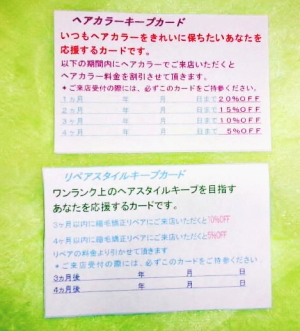 ヘアカラーキープカード
いつもヘアカラーをきれいに保ちたいあなたを
応援するカードです。
以下の期間内にヘアカラーでご来店いただくと
ヘアカラー料金を割引させて頂きます。
＊ご来店受付の際には、必ずこのカードをご持参ください。
1ヵ月 年 月 日まで20%OFF
2ヶ月 年 月 日まで15%OFF
3ヶ月 年 月 日まで10%OFF
4ヶ月 年 月 日まで 5%OFF
リペアスタイルキープカード
ワンランク上のヘアスタイルキープを目指す
あなたを応援するカードです。
3ヶ月以内に縮毛矯正リペアにご来店いただくと10%OFF
4ヶ月以内に縮毛矯正リペアにご来店いただくと5%OFF
リペアの料金より引かせて頂きます
＊ご来店受付の際には、必ずこのカードをご持参ください
3カ月後 年 月 日
4カ月後 年 月 日